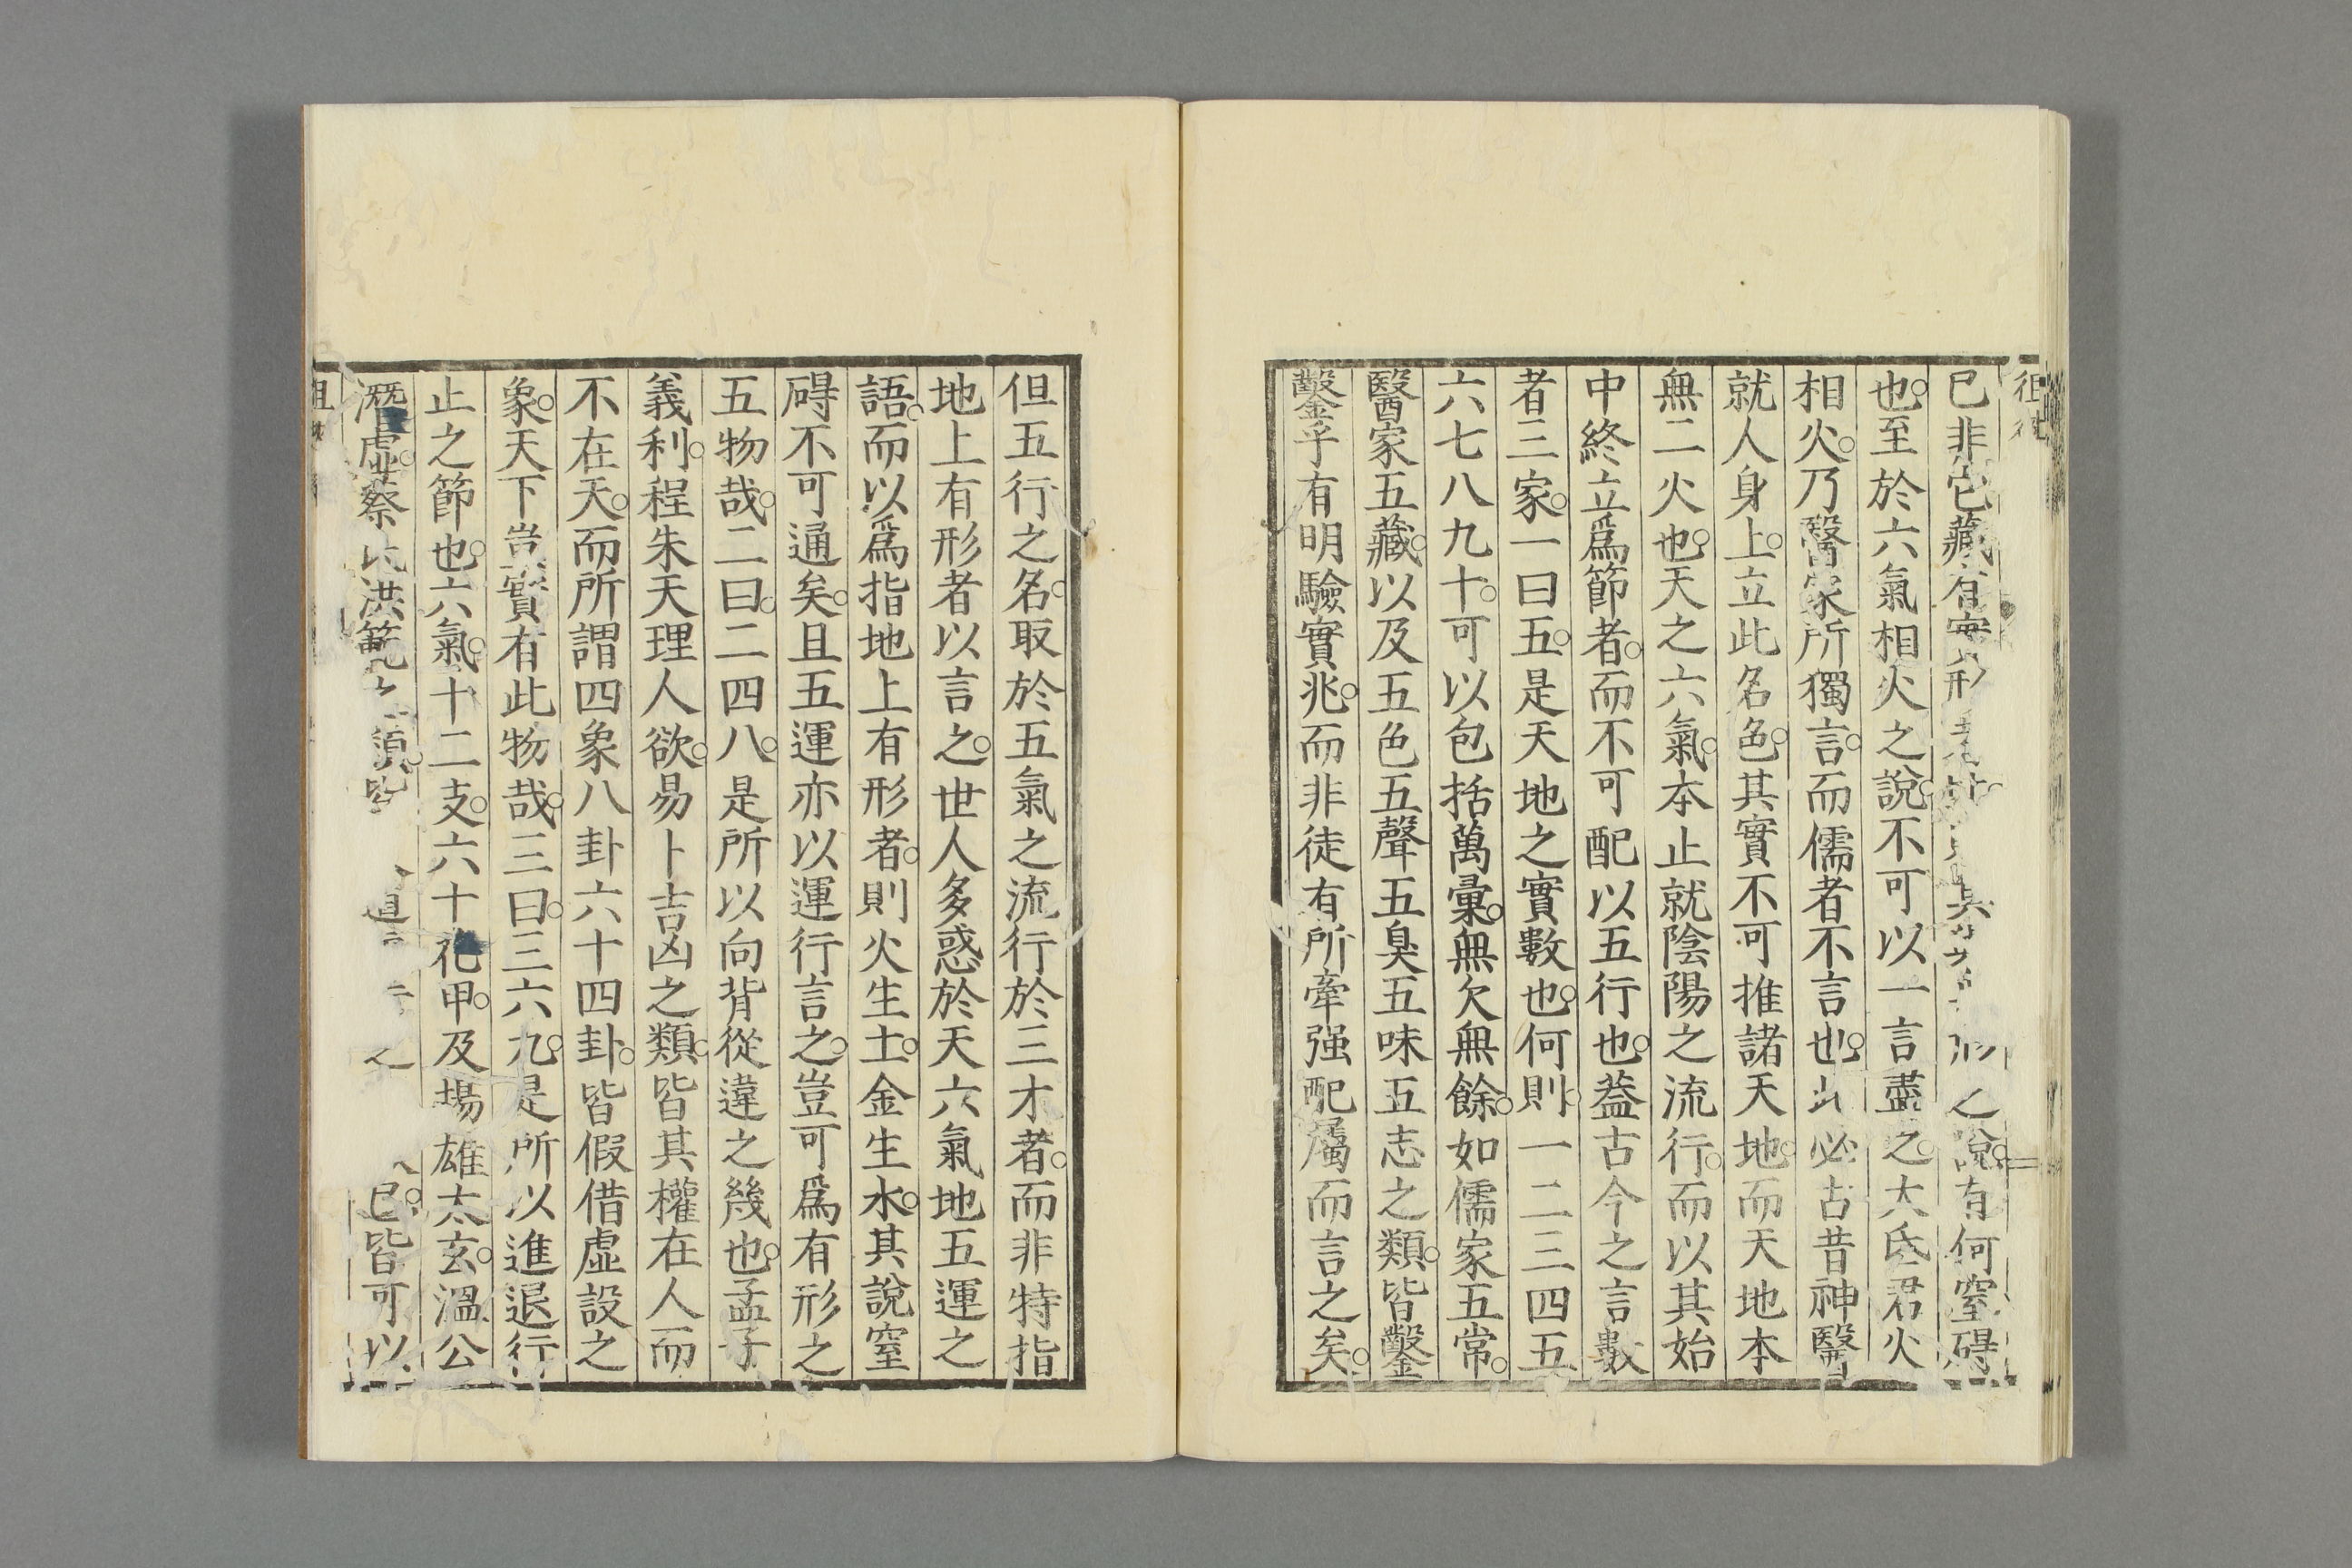 已非它藏有實形 其 之說有何窒碍
也至於六氣相火之說不可以一言盡之大氐君火
相火乃醫家所獨言而儒者不言也此必古昔神醫
就人身上立此名色其實不可推諸天地而天地本
無二火也天之六氣本止就陰陽之流行而以其始
中終立爲節者而不可配以五行也蓋古今之言數
者三家一曰五是天地之實數也何則一二三四五
六七八九十可以包括萬彙無欠無餘如儒家五常
醫家五藏以及五色五聲五臭五味五志之類皆鑿
鑿乎有明驗實兆而非徒有所牽强配屬而言之矣
但五行之名取於五氣之流行於三才者而非特指
地上有形者以言之世人多惑於天六氣地五運之
語而以爲指地上有形者則火生土金生水其說窒
碍不可通矣且五運亦以運行言之豈可爲有形之
五物哉二曰二四八是所以向背從違之幾也孟子
義利程朱天理人欲易卜吉凶之類皆其權在人而
不在天而所謂四象八卦六十四卦皆假借虛設之
象天下豈實有此物哉三曰三六九是所以進退行
止之節也六氣十二支六十花甲及場雄太玄溫公
潛虛蔡氏洪範之類皆 道 之 已皆可以